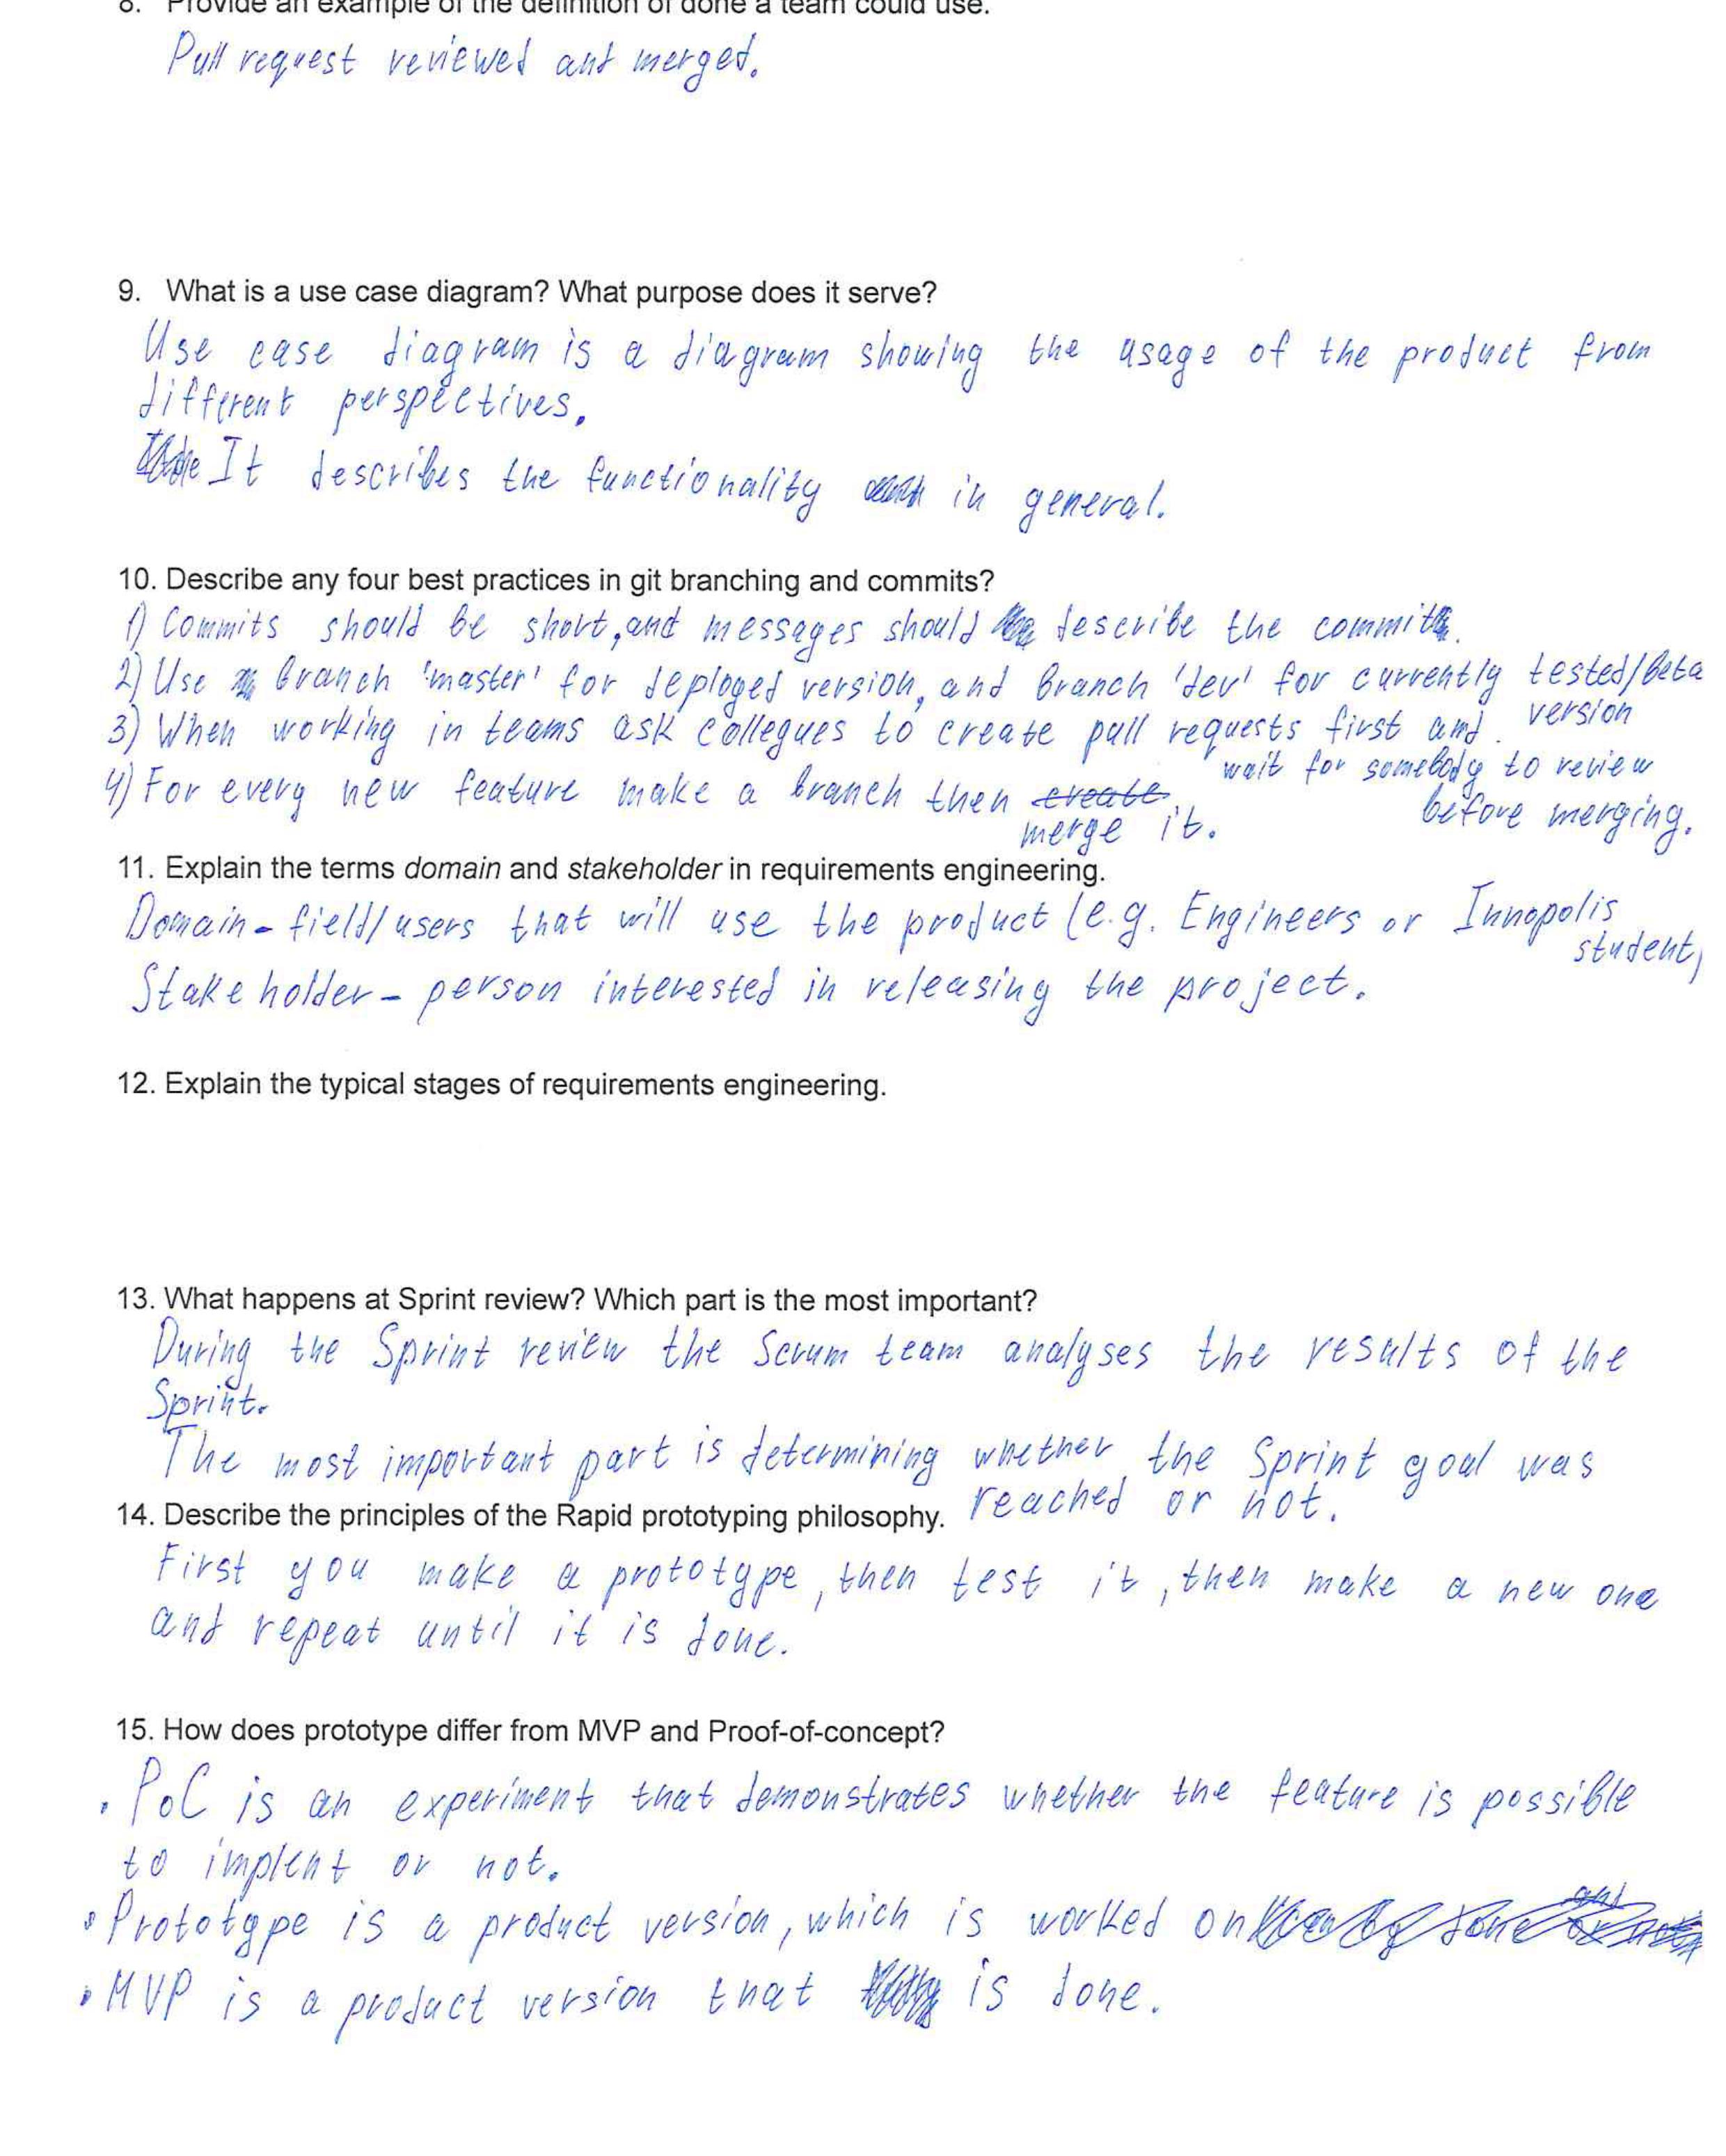 8. Provide an example of the definition of done a team could use.
Pull request reviewed and merged.
9. What is a use case diagram? What purpose does it serve?
Use case diagram is a diagram showing the usage of the product from
different perspectives.
It describes the functionality in general.
10. Describe any four best practices in git branching and commits?
1) Commits should be short, and messages should describe the commit.
2) Use branch 'master' for deployed version, and branch 'dev' for currently tested/beta
version
3) When working in teams ask collegues to create pull requests first and
wait for somebody to review
before merging.
4) For every new feature make a branch then create
merge it.
11. Explain the terms domain and stakeholder in requirements engineering.
Domain - field/users that will use the product (e.g. Engineers or Innopolis
student)
Stakeholder - person interested in releasing the project.
12. Explain the typical stages of requirements engineering.
13. What happens at Sprint review? Which part is the most important?
During the Sprint review the Scrum team analyses the results of the
Sprint.
The most important part is determining whether the Sprint goal was
reached or not.
14. Describe the principles of the Rapid prototyping philosophy.
First you make a prototype, then test it, then make a new one
and repeat until it is done.
15. How does prototype differ from MVP and Proof-of-concept?
• PoC is an experiment that demonstrates whether the feature is possible
to implent or not.
• Prototype is a product version, which is worked on
• MVP is a product version that is done.